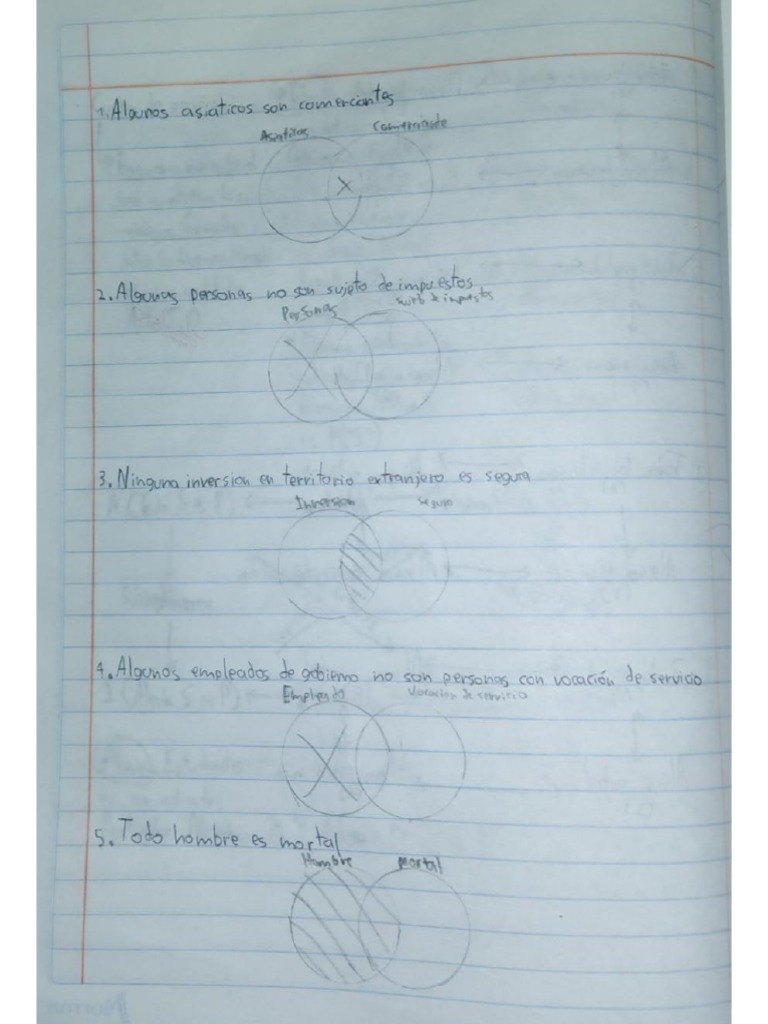 1. Algunos asiaticos son comerciantes
Asiaticos Comerciante
x
2. Algunas personas no son sujeto de impuestos
Personas sujeto de impuestos
X
3. Ninguna inversion en territorio extranjero es segura
Inversion seguro
4. Algunos empleados de gobierno no son personas con vocación de servicio
Empleado Vocacion de servicio
X
5. Todo hombre es mortal
Hombre Mortal
Norma